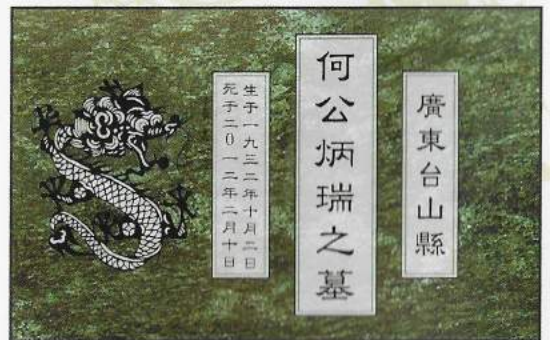 廣東台山縣
何公炳瑞之墓
生于一九三二年十月二日
死于二0一二年二月十日